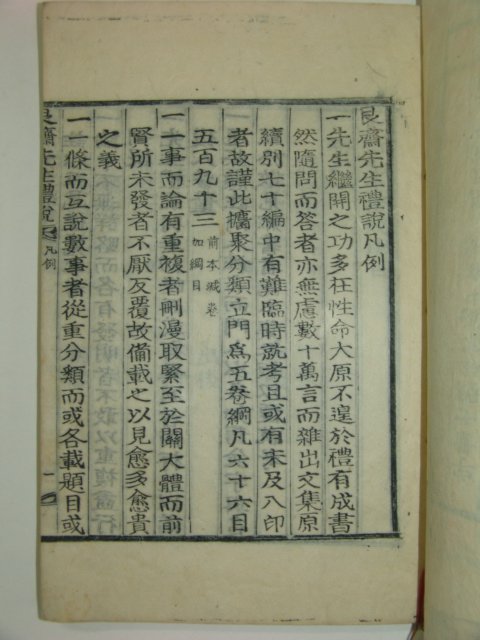 艮齋先生禮說凡例
一先生繼開之功多在性命大原不遑於禮有成書
然隨問而答者亦無慮數十萬言而雜出文集原
續別七十編中有難臨時就考且或有未及入印
者故謹此攟聚分類立門為五卷綱凡六十六目
五百九十三前本減卷加綱目
一一事而論有重複者刪漫取緊至於關大體而前
賢所未發者不厭反覆故備載之以見愈多愈貴
之義
一一條而互說數事者從重分類而或各載題目或
艮齋先生禮說 凡例 一